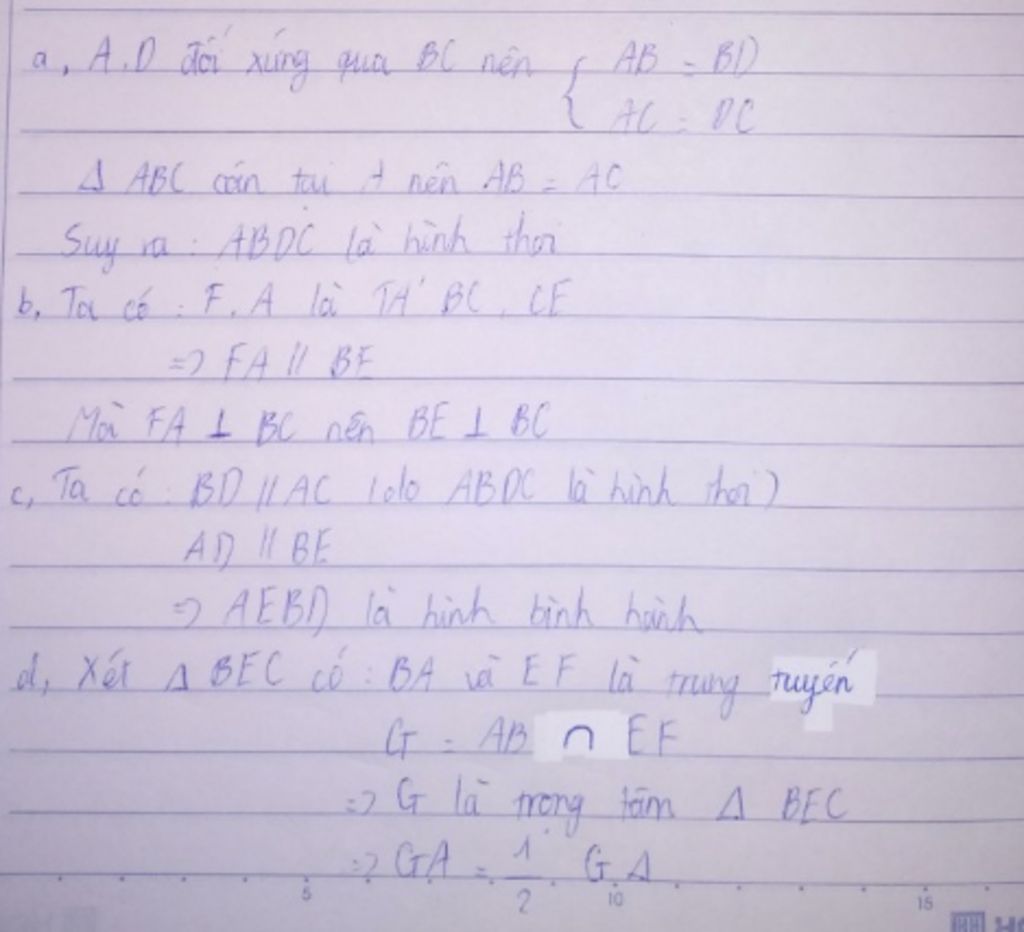 a, A, D đối xứng qua BC nên { AB = BD
AC = DC
Δ ABC cân tại A nên AB = AC
Suy ra : ABDC là hình thoi
b, Ta có : F, A là TĐ BC, CE
=> FA // BE
Mà FA ⊥ BC nên BE ⊥ BC
c, Ta có : BD // AC (do ABDC là hình thoi)
AD // BE
=> AEBD là hình bình hành
d, Xét Δ BEC có : BA và EF là trung tuyến
G = AB ∩ EF
=> G là trọng tâm Δ BEC
=> GA = 1/2 GA
5 10 15